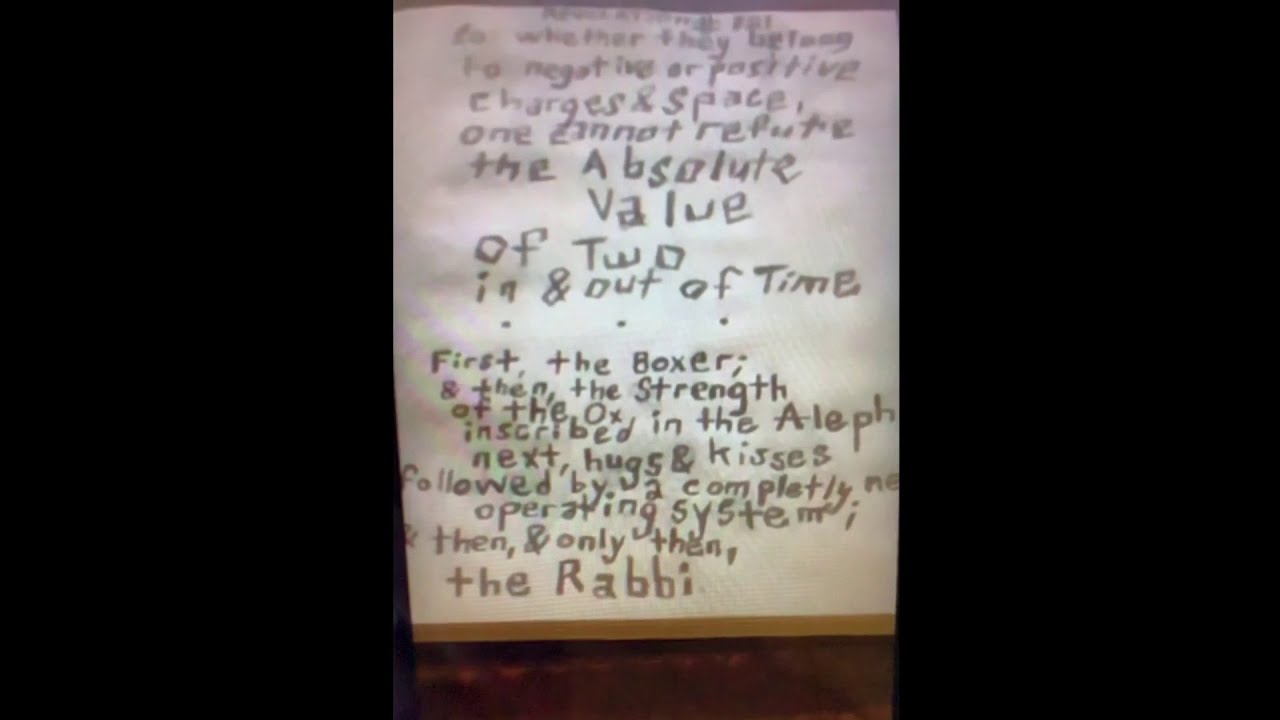 to whether they belong
to negative or posittive
charges & space,
one cannot refute
the Absolute
Value
of Two
in & out of Time
. . .
First, the Boxer;
& then, the Strength
of the Ox,
inscribed in the Aleph
next, hugs & kisses
followed by a completly ne
operating system;
& then, & only then,
the Rabbi